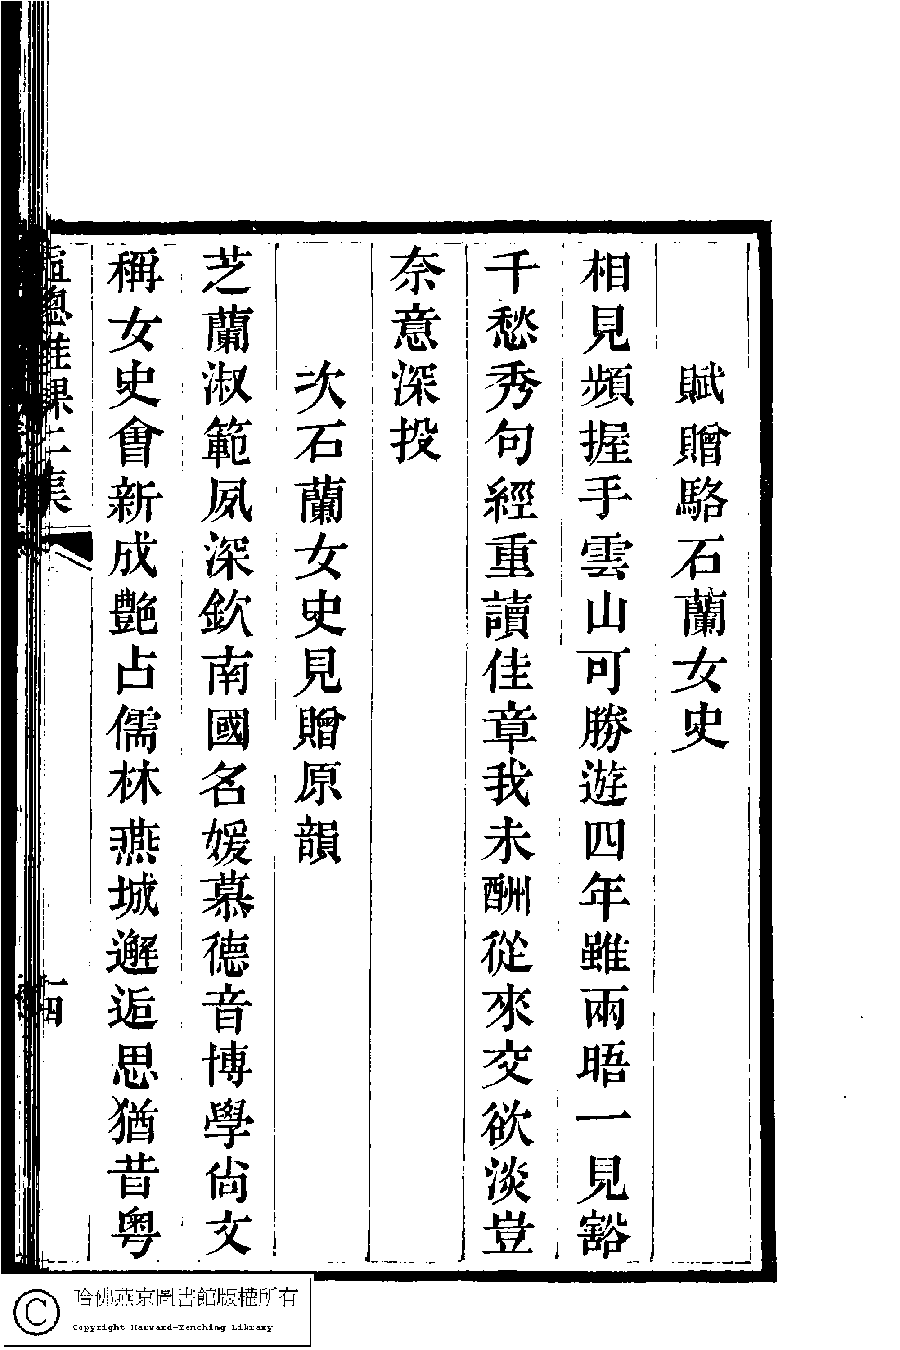 賦贈駱石蘭女史
相見頻握手雲山可勝遊四年雖兩晤一見豁
千愁秀句經重讀佳章我未酬從來交欲淡豈
奈意深投
次石蘭女史見贈原韻
芝蘭淑範夙深欽南國名媛慕德音博學尚文
稱女史會新成艷占儒林燕城邂逅思猶昔粵
十四
哈佛燕京圖書館版權所有
Copyright Harvard-Yenching Library